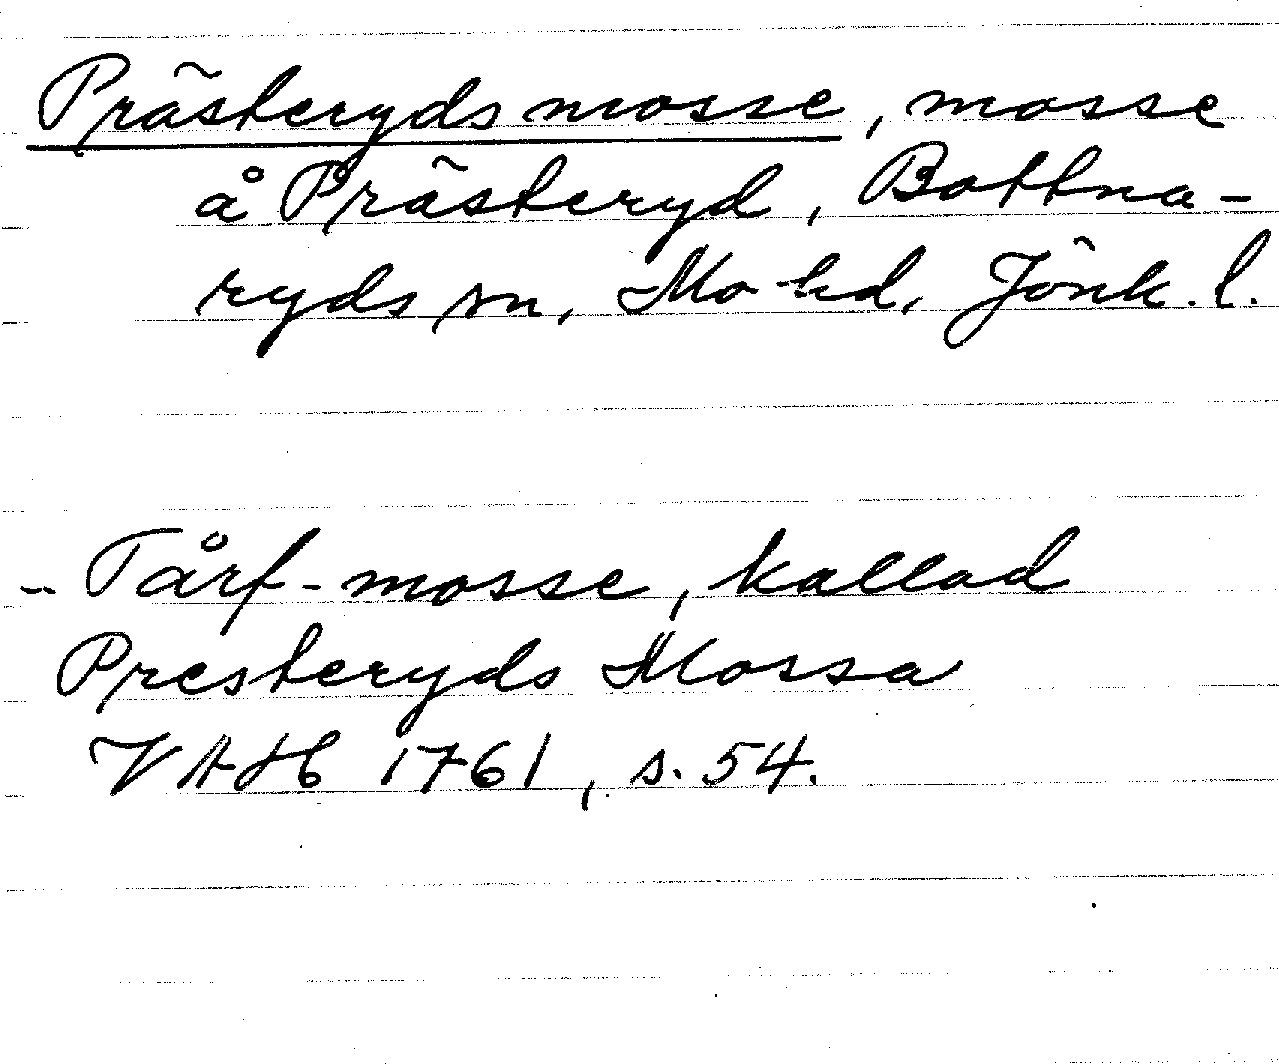 Prästerydsmosse, mosse
å Prästeryd, Bottna-
ryds sn, Mo hd, Jönk. l.
- Tårf-mosse, kallad
Presteryds Mossa
VAH 1761, s. 54.